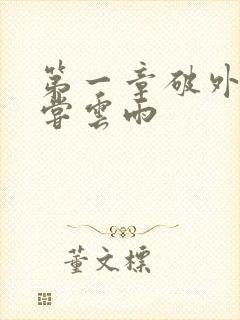 第一章破外
尝雲雨
董文標